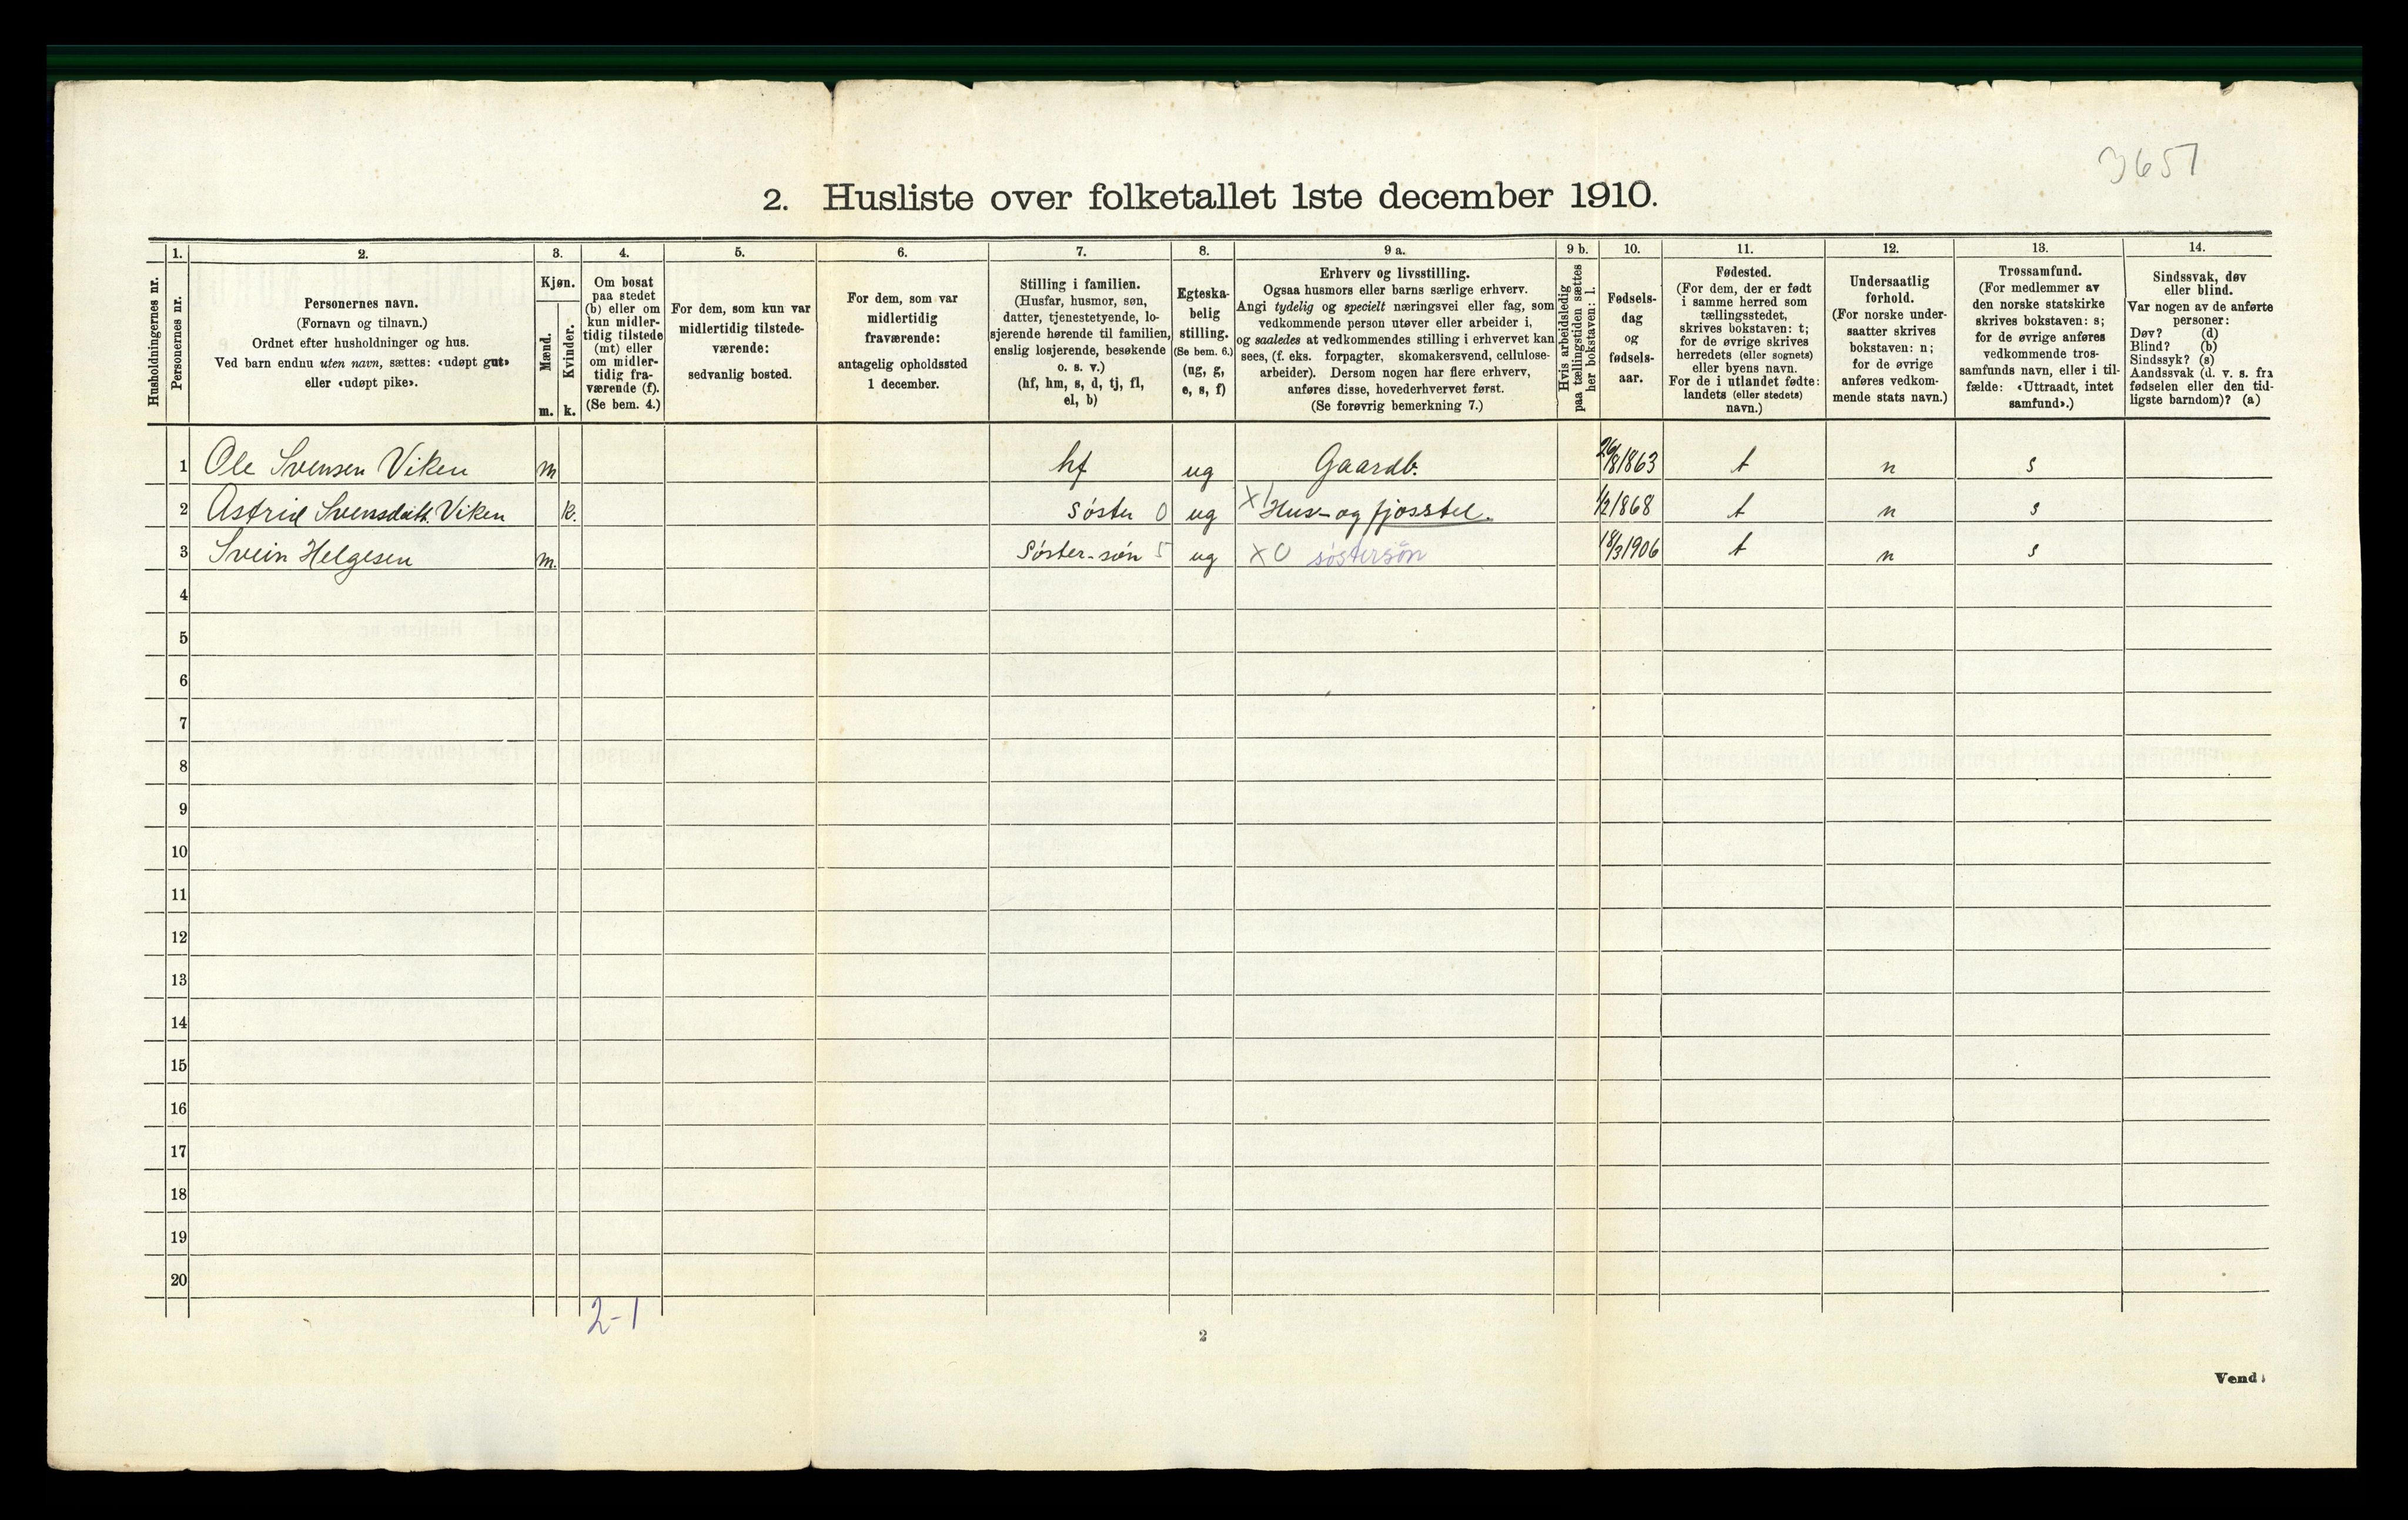 3657
2. Husliste over folketallet 1ste december 1910.
Husholdningernes nr.
1.
Personernes nr.
2.
Personernes navn.
(Fornavn og tilnavn.)
Ordnet efter husholdninger og hus.
Ved barn endnu uten navn, sættes: «udøpt gut»
eller «udøpt pike».
3.
Kjøn.
Mænd.
Kvinder.
m. k.
4.
Om bosat
paa stedet
(b) eller om
kun midler-
tidig tilstede
(mt) eller
om midler-
tidig fra-
værende (f).
(Se bem. 4.)
5.
For dem, som kun var
midlertidig tilstede-
værende:
sedvanlig bosted.
6.
For dem, som var
midlertidig
fraværende:
antagelig opholdssted
1 december.
7.
Stilling i familien.
(Husfar, husmor, søn,
datter, tjenestetyende, lo-
sjerende hørende til familien,
enslig losjerende, besøkende
o. s. v.)
(hf, hm, s, d, tj, fl,
el, b)
8.
Egteska-
belig
stilling.
(Se bem. 6.)
(ug, g,
e, s, f)
9 a.
Erhverv og livsstilling.
Ogsaa husmors eller barns særlige erhverv.
Angi tydelig og specielt næringsvei eller fag, som
vedkommende person utøver eller arbeider i,
og saaledes at vedkommendes stilling i erhvervet kan
sees, (f. eks. forpagter, skomakersvend, cellulose-
arbeider). Dersom nogen har flere erhverv,
anføres disse, hovederhvervet først.
(Se forøvrig bemerkning 7.)
9 b.
Hvis arbeidsledig
paa tællingstiden sættes
her bokstaven: l.
10.
Fødsels-
dag
og
fødsels-
aar.
11.
Fødested.
(For dem, der er født
i samme herred som
tællingsstedet,
skrives bokstaven: t;
for de øvrige skrives
herredets (eller sognets)
eller byens navn.
For de i utlandet fødte:
landets (eller stedets)
navn.)
12.
Undersaatlig
forhold.
(For norske under-
saatter skrives
bokstaven: n;
for de øvrige
anføres vedkom-
mende stats navn.)
13.
Trossamfund.
(For medlemmer av
den norske statskirke
skrives bokstaven: s;
for de øvrige anføres
vedkommende tros-
samfunds navn, eller i til-
fælde: «Uttraadt, intet
samfund».)
14.
Sindssvak, døv
eller blind.
Var nogen av de anførte
personer:
Døv? (d)
Blind? (b)
Sindssyk? (s)
Aandssvak (d. v. s. fra
fødselen eller den tid-
ligste barndom)? (a)
1 Ole Svensen Viken m hf ug Gaardb. 26/8 1863 t n s
2 Astrid Svensdatt. Viken k. søster 0 ug X1 Hus- og fjosstel. 1/2 1868 t n s
3 Svein Helgesen m. Søster-søn 5 ug X0 søstersøn 18/3 1906 t n s
4
5
6
7
8
9
10
11
12
13
14
15
16
17
18
19
20
2-1
2
Vend!